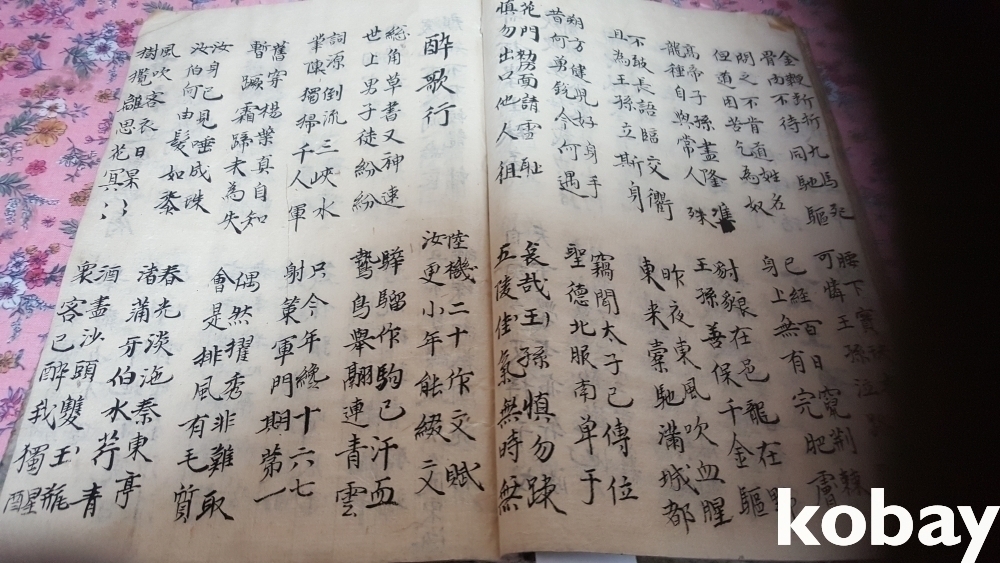 金鞭斷折九馬死
骨肉不待同馳驅
腰下寶
可憐王孫泣
問之不肯道姓名
但道困苦乞為奴
已經百日竄荊棘
身上無有完肥膚
高帝子孫盡隆準
龍種自與常人殊
豺狼在邑龍在野
王孫善保千金軀
不敢長語臨交衢
且為王孫立斯身
昨夜東風吹血腥
東來橐馳滿城都
朔方健兒好身手
昔何勇銳今何遇
竊聞太子已傳位
聖德北服南单于
花門剺面請雪恥
慎勿出口他人徂
哀哉王孫慎勿踈
五陵佳氣無時無
醉歌行
陸機二十作文賦
汝更小年能綴文
総角草書又神速
世上男子徒紛紛
驊騮作駒已汗血
鷙鳥舉翮連青雲
詞源倒流三峽水
筆陣獨掃千人軍
只今年纔十六七
射策軍門期第一
舊穿楊葉真自知
暫蹶霜蹄未為失
偶然擢秀非難取
會是排風有毛質
汝身已見唾成珠
汝伯何由髮如桼
春光淡沲秦東亭
渚蒲牙伯水荇青
風吹客衣日杲〻
樹攪離思花冥〻
酒盡沙頭雙玉瓶
衆客已醉我獨醒
kobay